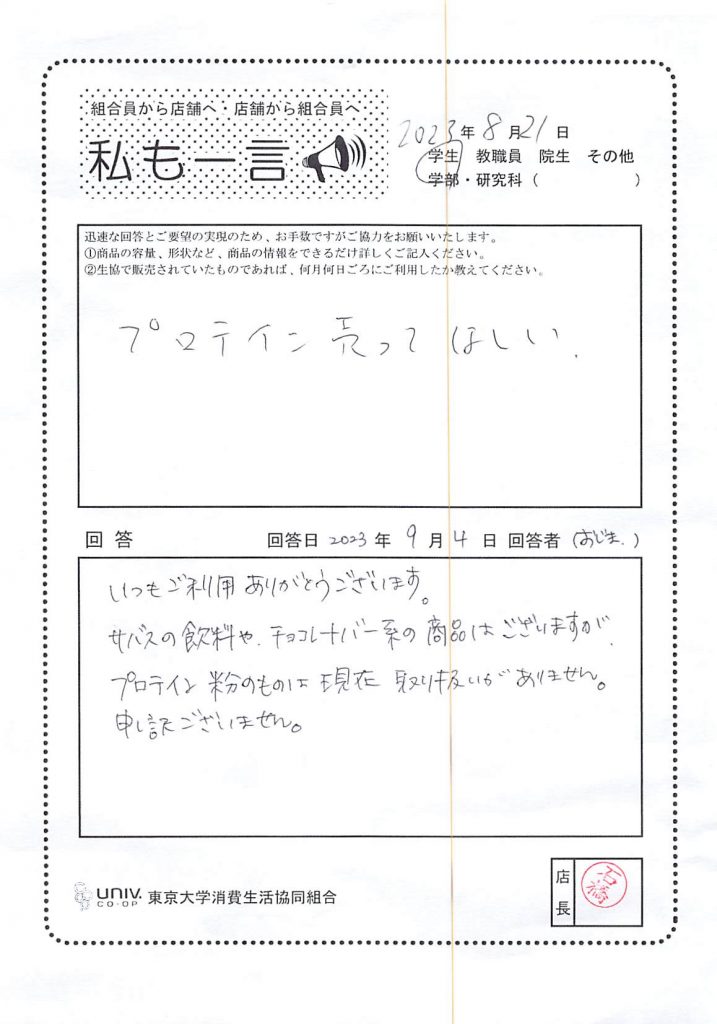 組合員から店舗へ・店舗から組合員へ
私も一言
2023年8月21日
学生 教職員 院生 その他
学部・研究科( )
迅速な回答とご要望の実現のため、お手数ですがご協力をお願いいたします。
①商品の容量、形状など、商品の情報をできるだけ詳しくご記入ください。
②生協で販売されていたものであれば、何月何日ごろにご利用したか教えてください。
プロテイン売ってほしい.
回答 回答日 2023 年 9 月 4 日 回答者 (おじま.)
いつもご利用ありがとうございます。
サバスの飲料や、チョコレートバー系の商品はございますが、
プロテイン粉のものは現在取り扱いがありません。
申し訳ございません。
店長
石橋
UNIV. CO-OP 東京大学消費生活協同組合